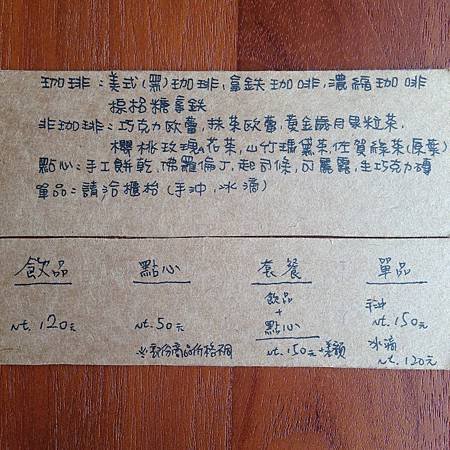 咖啡：美式(黑)咖啡，拿鉄咖啡，濃縮咖啡
楓格糖拿鉄
非咖啡：巧克力歐蕾，抹茶歐蕾，黃金歲月果粒茶，
櫻桃玫瑰花茶，山竹瑪黛茶，佐賀綠茶(原葉)
點心：手工餅乾，佛羅倫丁，起司條，可麗露，生巧克力磚
單品：請洽櫃枱(手沖，冰滴)
飲品 點心 套餐 單品
nt. 120元
nt. 50元
※部份商品价格不同
飲品
+
點心
nt. 150元+差額
手沖
nt. 150元
冰滴
nt. 120元